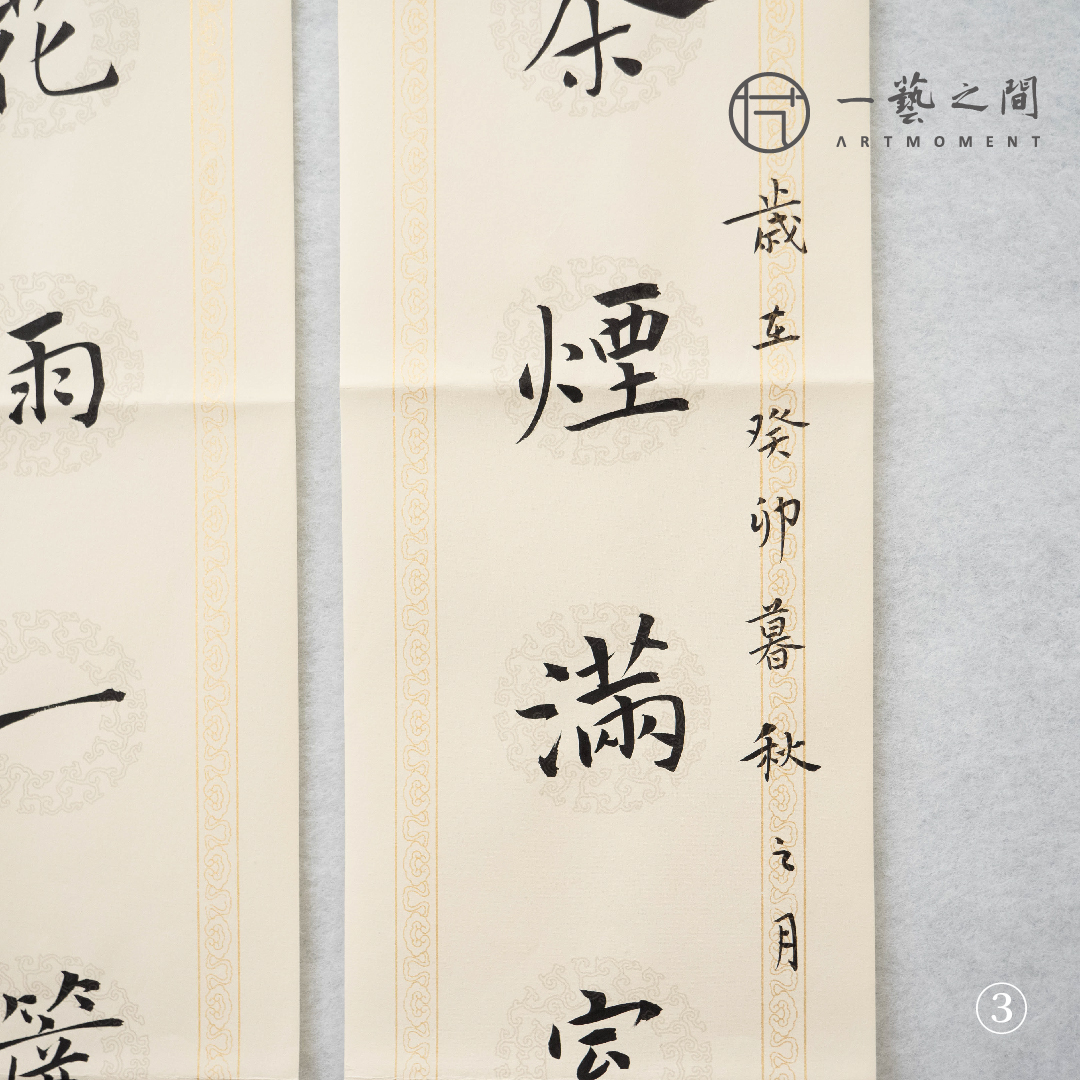 一藝之間
ARTMOMENT
歳在癸卯暮秋之月
茶煙滿
花雨一
③